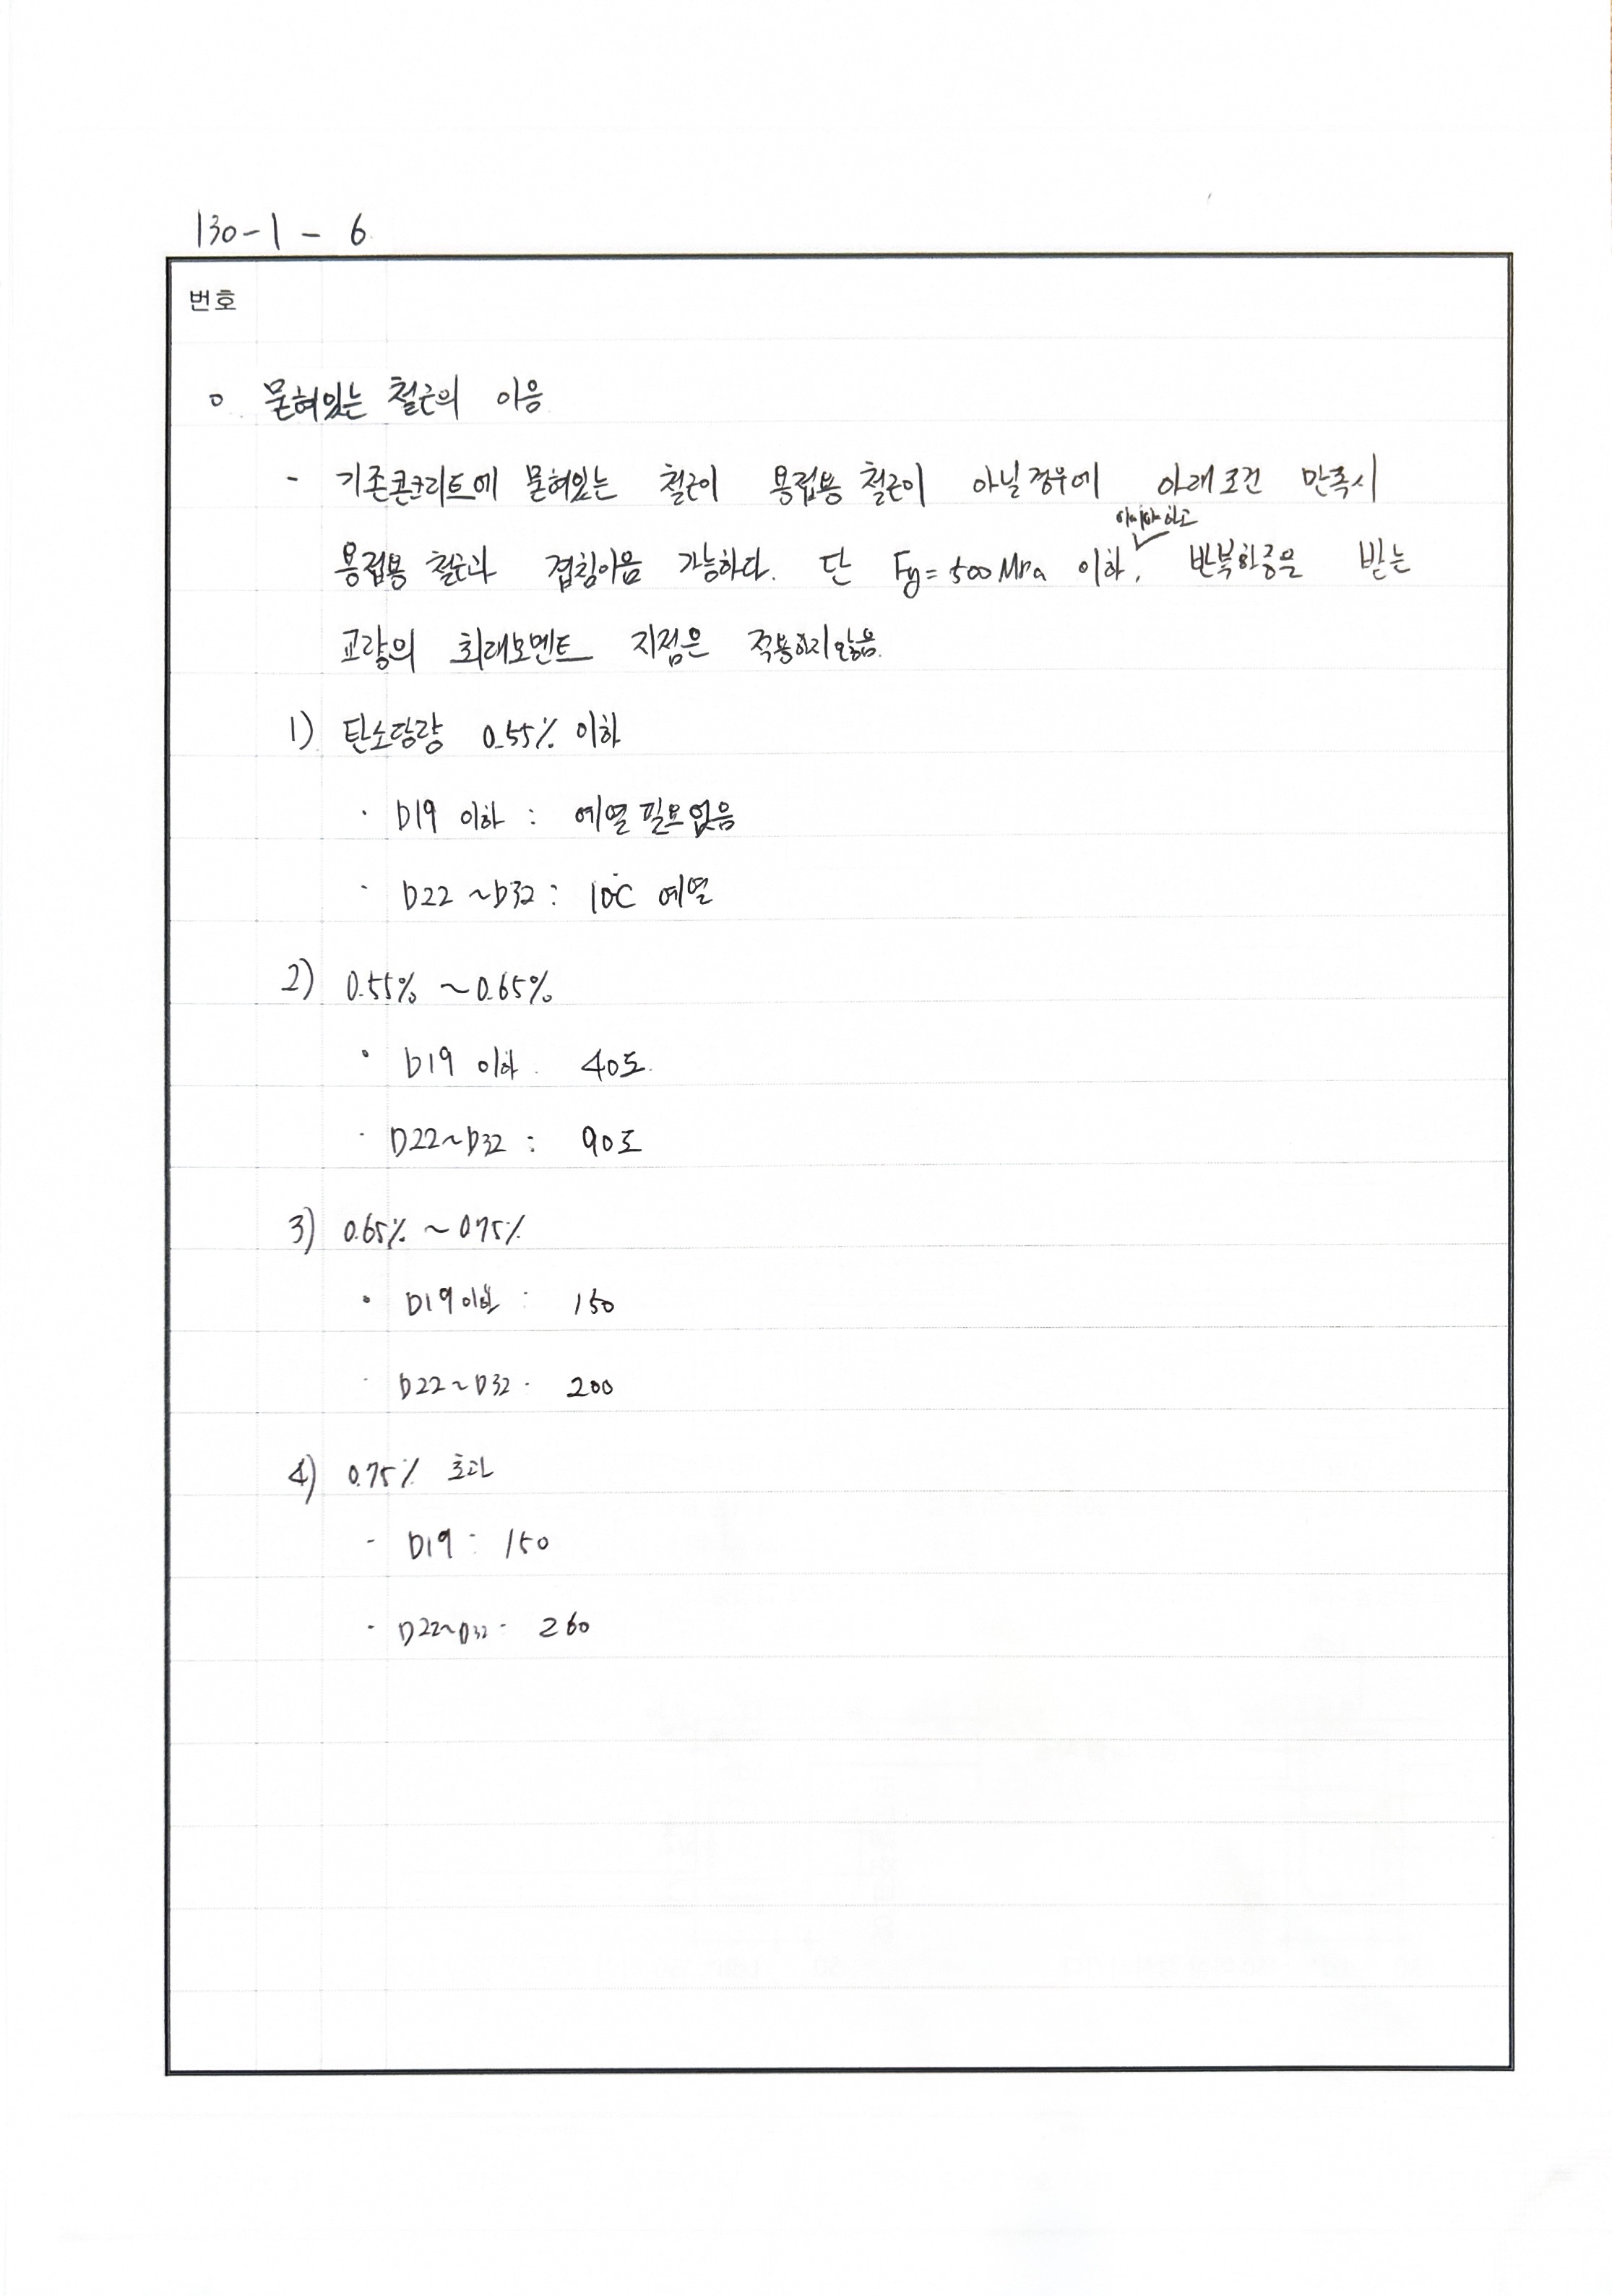 130-1 - 6
번호
o 묻혀있는 철근의 이음
- 기존콘크리트에 묻혀있는 철근이 용접용 철근이 아닐경우에 아래조건 만족시
이어야 하고
용접용 철근과 겹침이음 가능하다. 단 Fy = 500 MPa 이하, 반복하중을 받는
교량의 최대모멘트 지점은 적용하지않음.
1) 탄소당량 0.55% 이하
· D19 이하 : 예열필요없음
· D22 ~ D32 : 10°C 예열
2) 0.55% ~ 0.65%
· D19 이하 . 40도.
· D22~D32 : 90도
3) 0.65% ~ 0.75%
· D19이하 : 150
· D22~D32 · 200
4) 0.75% 초과
- D19 : 150
· D22~D32 - 260